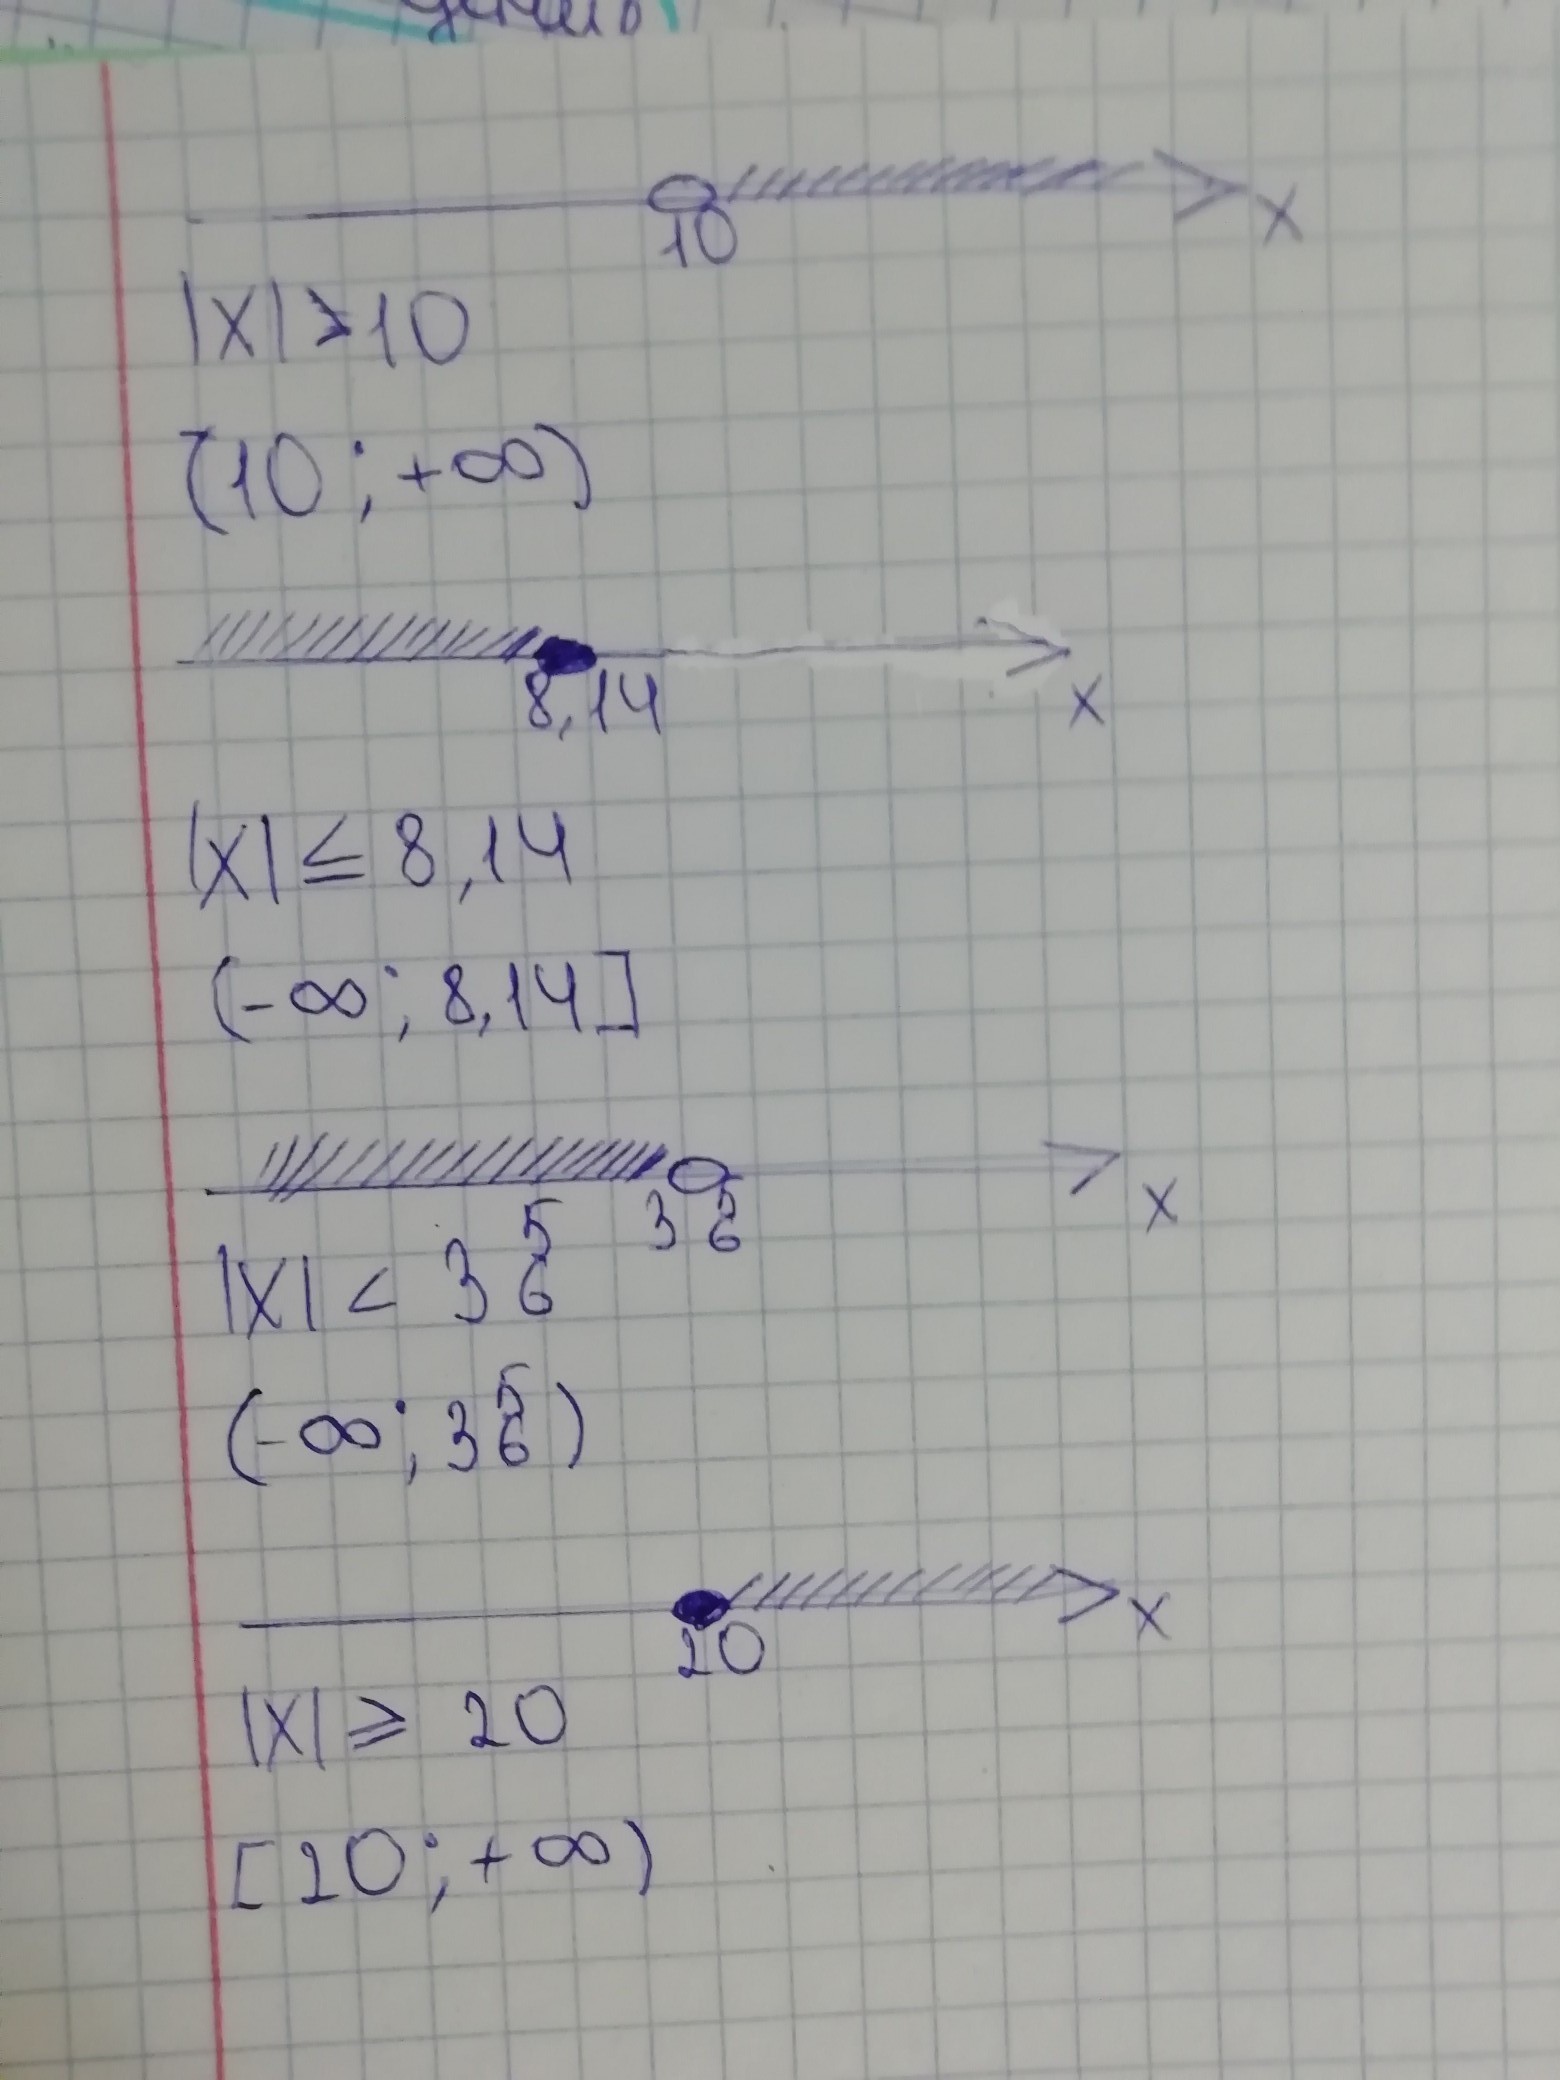 10
X
|X| > 10
(10; +∞)
8,14
X
|X| ≤ 8,14
(-∞; 8,14]
3 5/6
X
|X| < 3 5/6
(-∞; 3 5/6)
20
X
|X| ≥ 20
[20; +∞)